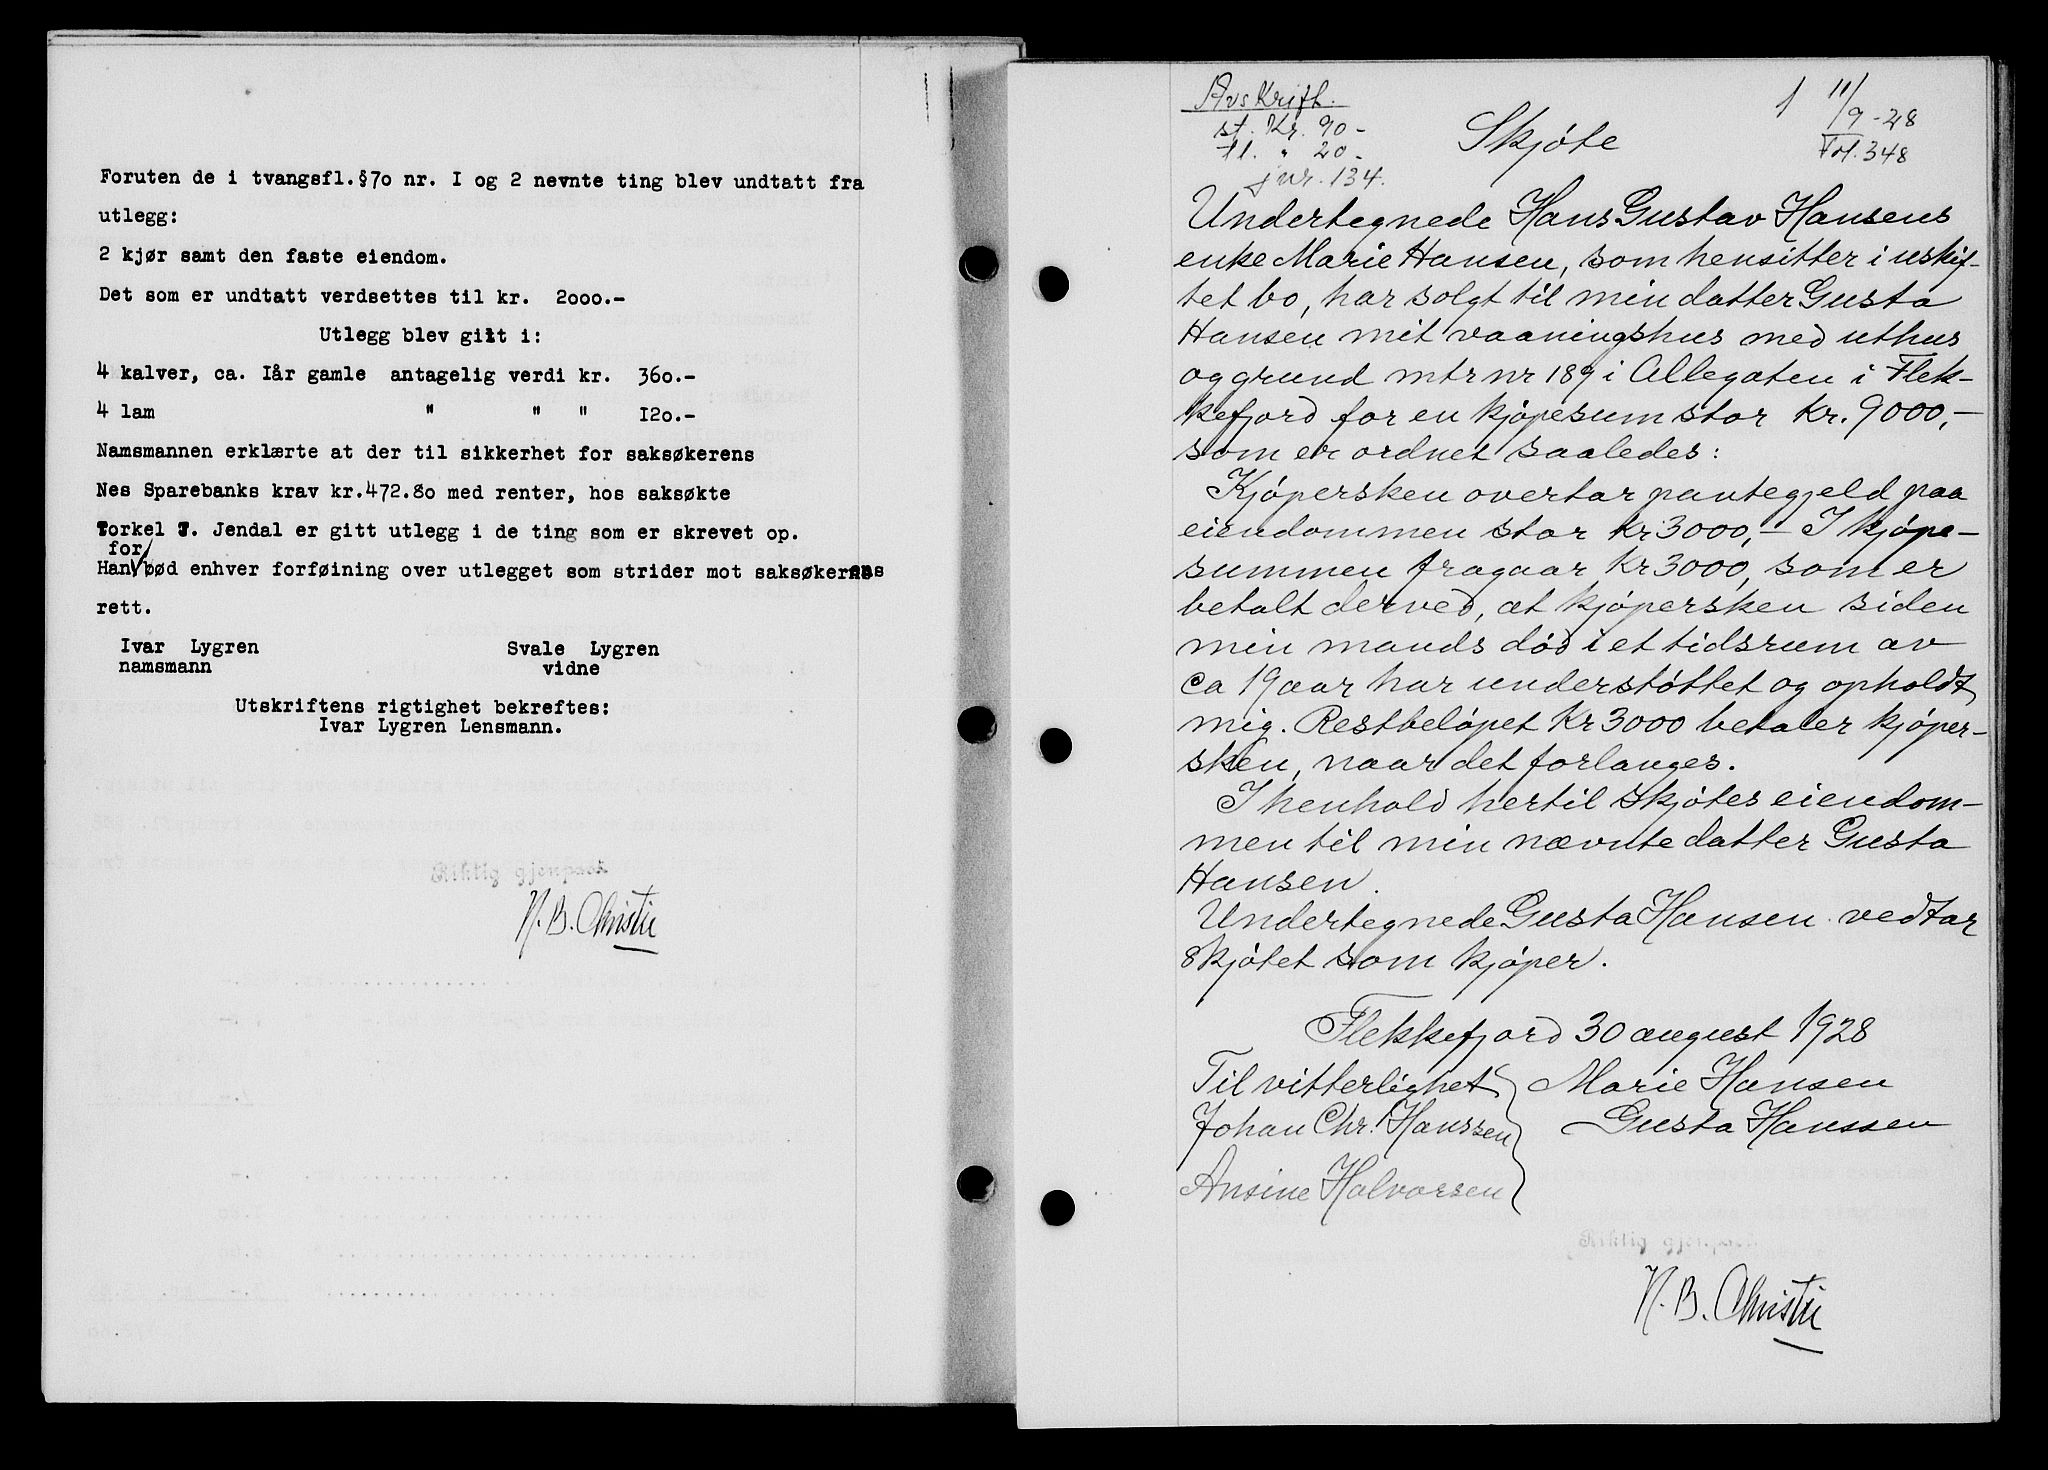 Foruten de i tvangsfl.§70 nr. I og 2 nevnte ting blev undtatt fra
utlegg:
2 kjør samt den faste eiendom.
Det som er undtatt verdsettes til kr. 2000.-
Utlegg blev gitt i:
4 kalver, ca. Iår gamle antagelig verdi kr. 360.-
4 lam " " " I20.-
Namsmannen erklærte at der til sikkerhet for saksøkerens
Nes Sparebanks krav kr.472.80 med renter, hos saksøkte
Torkel T. Jendal er gitt utlegg i de ting som er skrevet op.
for
Han bød enhver forføining over utlegget som strider mot saksøkerens
rett.
Ivar Lygren Svale Lygren
namsmann vidne
Utskriftens rigtighet bekreftes:
Ivar Lygren Lensmann.
Riktig gjenpart
N.B. Christie
Avskrift.
st. Kr. 90-
tl. " 20-
jnr. 134.
1 11/9-28
Fol. 348
Skjøte
Undertegnede Hans Gustav Hansens
enke Marie Hansen, som hensitter i uskif-
tet bo, har solgt til min datter Gusta
Hansen mit vaaningshus med uthus
og grund mtr nr 189 i Allegaten i Flek-
kefjord for en kjøpesum stor Kr. 9000,-
som er ordnet saaledes:
Kjøpersken overtar pantegjeld paa
eiendommen stor Kr 3000,- I kjøpe-
summen fragaar Kr 3000, som er
betalt derved, at kjøpersken siden
min mands død i et tidsrum av
ca 19 aar har understøttet og opholdt
mig. Restbeløpet Kr 3000 betaler kjøper-
sken, naar det forlanges.
I henhold hertil skjøtes eiendom-
men til min nævnte datter Gusta
Hansen.
Undertegnede Gusta Hansen vedtar
skjøtet som kjøper.
Flekkefjord 30 august 1928
Til vitterlighet Marie Hansen
Johan Chr. Hanssen Gusta Hanssen
Ansine Halvorsen
Riktig gjenpart
N.B. Christie